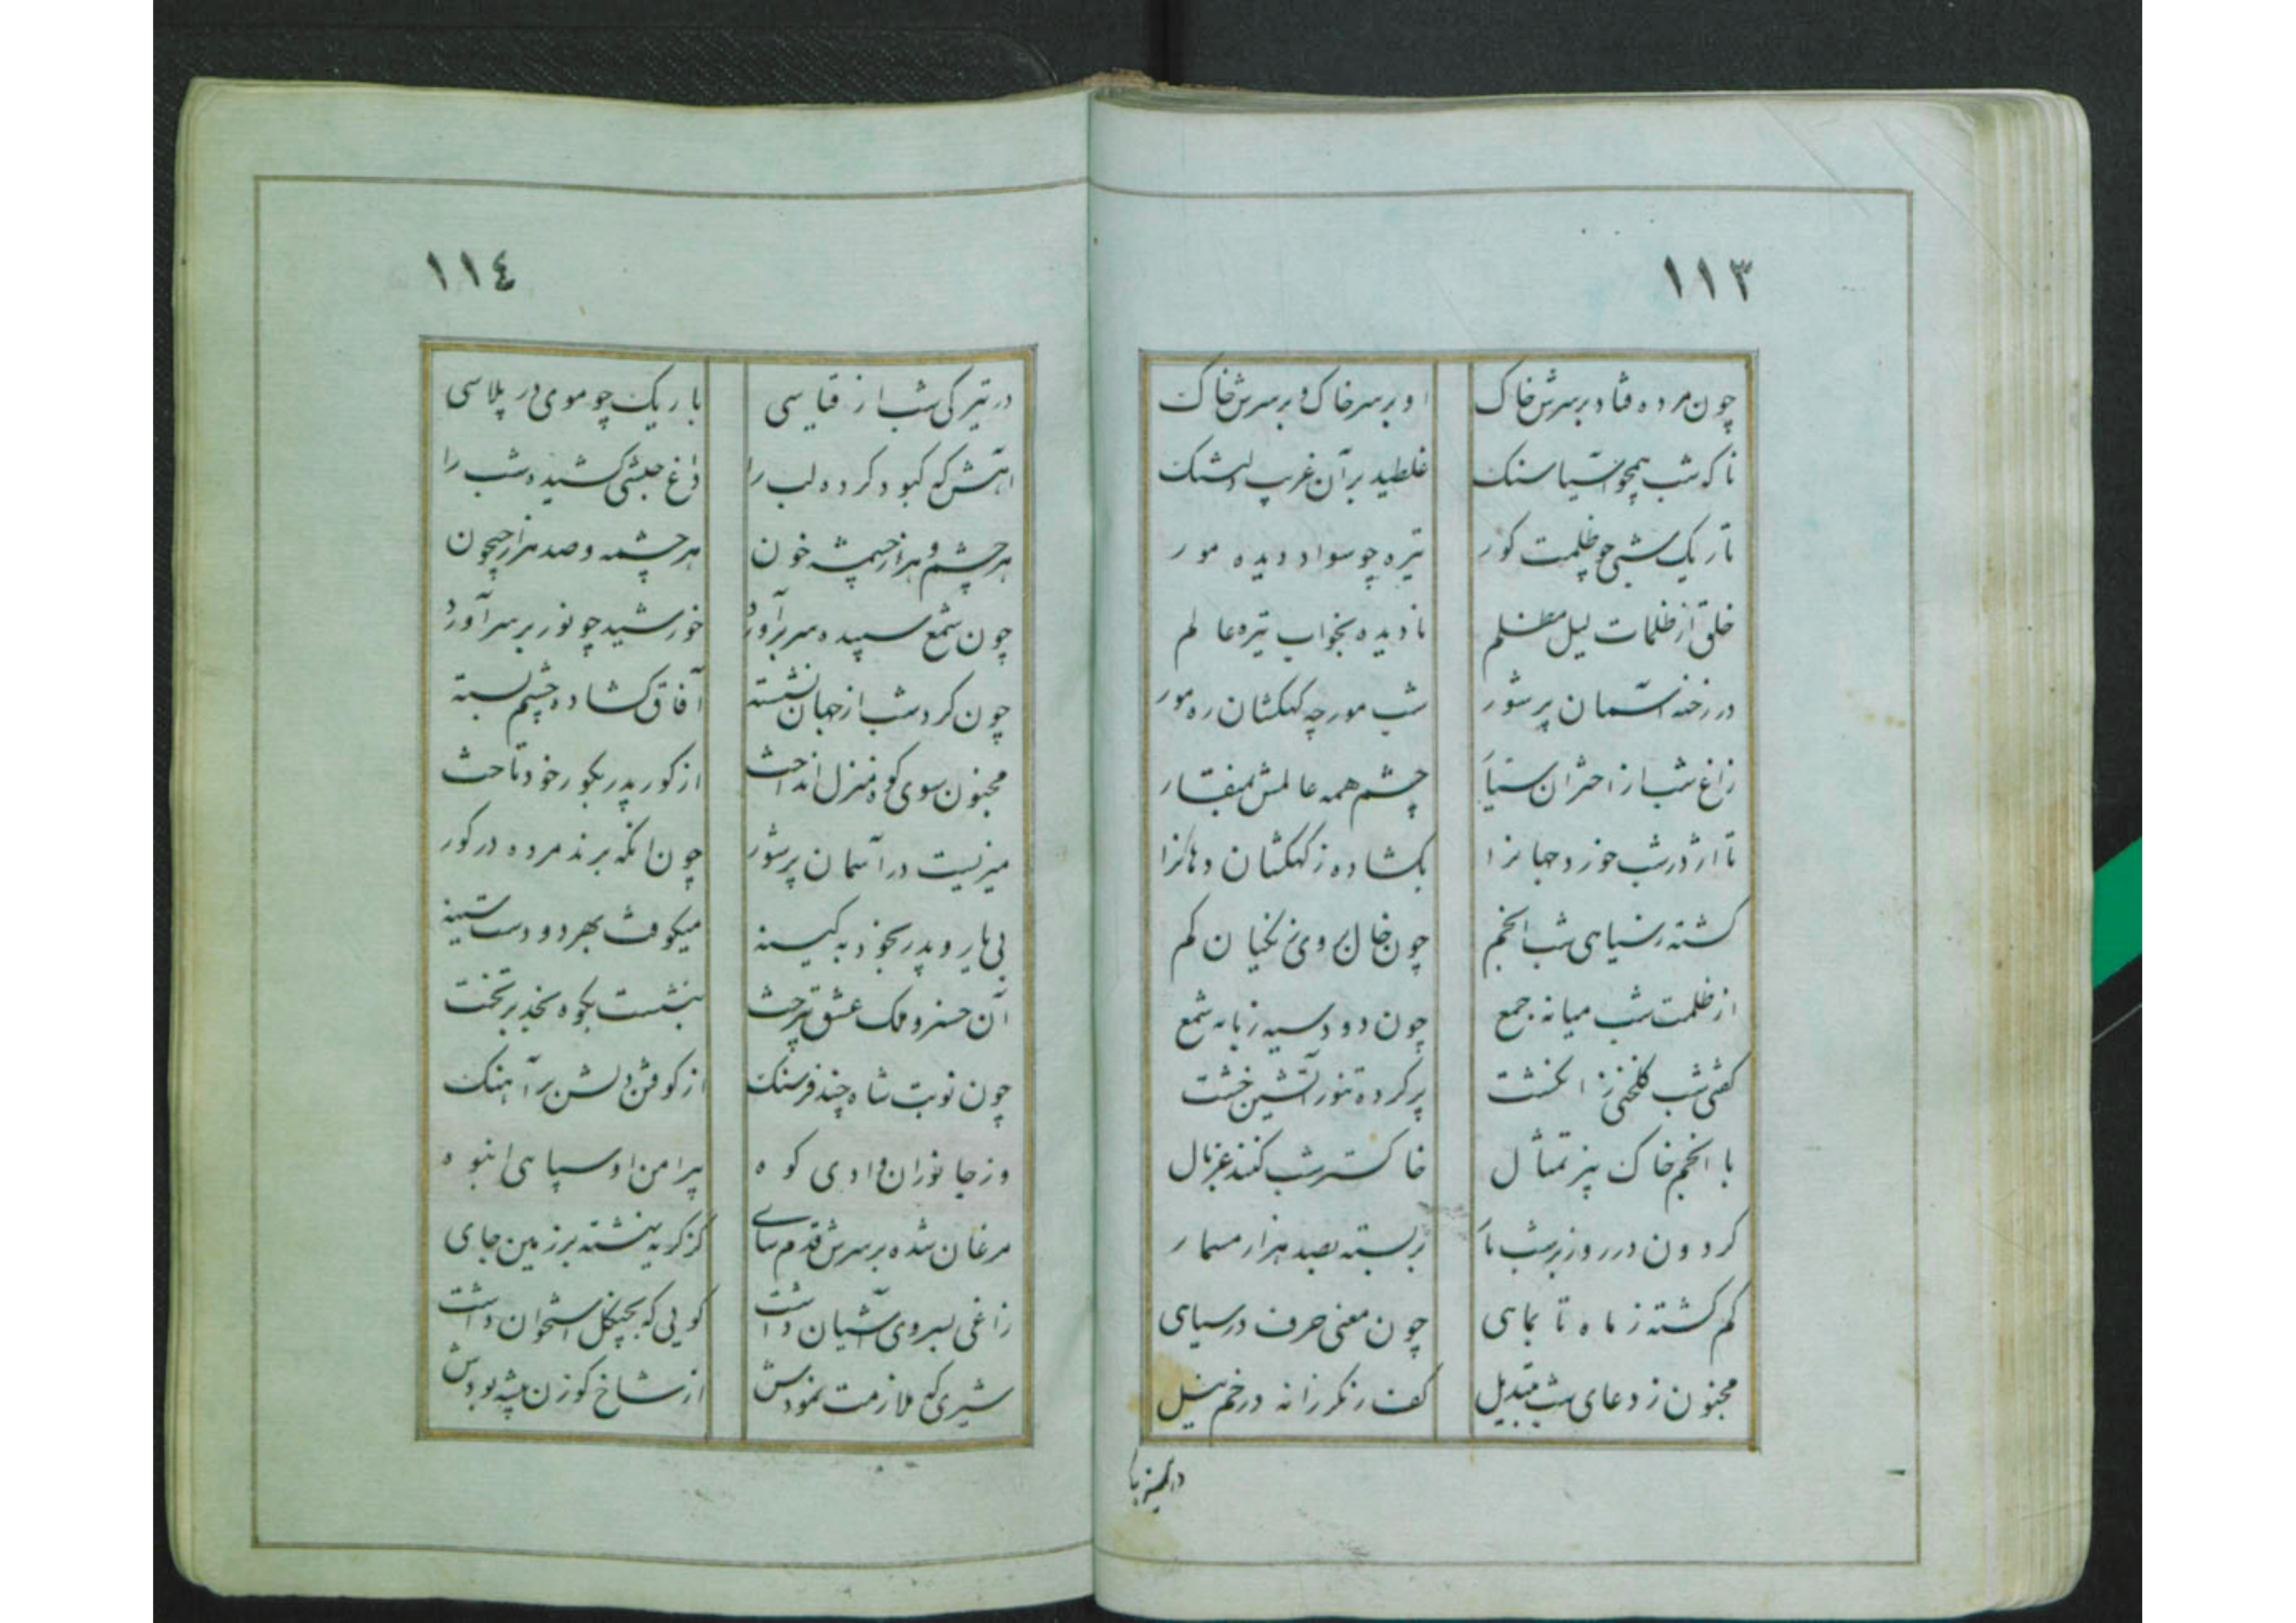 ١١٣
چون مرده فتاد و بر سرش خاک او بر سر خاک و بر سرش خاک
ناکه شب همچو آسیا سنک غلطید بر آن غریب دلتنک
تاریک شبی چو ظلمت کور تیره چو سواد دیده مور
خلق از ظلمات لیل مظلم نادیده بخواب تیره عالم
در رخنه آسمان پر شور شب مورچه کهکشان ره مور
زاغ شب از اختران سیا چشم همه عالمش بمنقار
تا اژدر شب خورد جهانرا بکشاده ز کهکشان دهانرا
کشته ز سیاهی شب انجم چون خال بروی زنکیان کم
از ظلمت شب میانه جمع چون دود سیه زبانه شمع
کفتی شب کلخنی ز انکشت پر کرده تنور آتشین خشت
با انجم خاک بیز تمثال خاکستر شب کنند غربال
کردون در روز بر شب تا بر بسته بصد هزار مسمار
کم کشته ز ماه تا بماهی چون معنی حرف در سیاهی
مجنون ز دعای شب تبدیل کف رنکرزانه در خم نیل
١١٤
در تیرکی شب از قیاسی باریک چو موی در پلاسی
آهش که کبود کرده لب را داغ حبشی کشیده شب را
هر چشم و هزار چشمه خون هر چشمه و صد هزار جیحون
چون شمع سپیده سر برآورد خورشید چو نور بر سر آورد
چون کرد شب از جهان نشسته آفاق کشاده چشم بسته
مجنون سوی کوه منزل انداخت از کور پدر بکور خود تاخت
میزیست در آسمان پر شور چون انکه برند مرده در کور
بی یار و پدر بخود به کینه میکوفت بهر دو دست سینه
آن خسرو ملک عشق تیره بخت بنشست بکوه نجد بر تخت
چون نوبت شاه چند فرسنک از کوفتن دلش بر آهنک
وز جانوران وادی کوه پیرامن او سپاهی انبوه
مرغان شده بر سرش قدم سای کز کریه بنشته بر زمین جای
زاغی بسر وی آشیان داشت کویی که بچنکل استخوان داشت
شیری که ملازمت نمودش از شاخ کوزن بیشه بودش